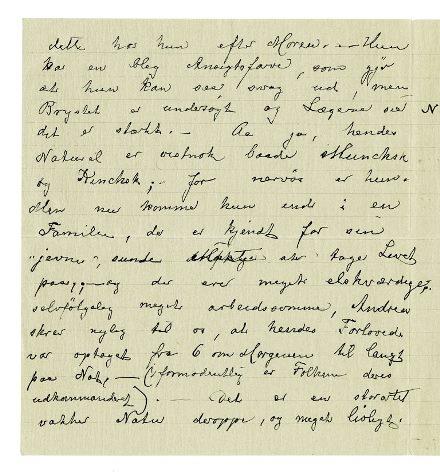 dette har hun efter Moren. — Hun
har en bleg Ansigtsfarve, som gjør
at hun kan see svag ud, men
Brystet er undersøgt og Lægerne sier
N
det er stærkt. — Aa ja, hendes
Naturel er vistnok baade Munchsk
og Kinchsk; for nervøs er hun.
Men nu kommer hun ind i en
Familie, der er kjendt for sin
"jevne", sunde at tage Livet
paa, og der ere meget elskværdige,
selvfølgelig meget arbeidsomme, Andreas
skrev nylig til os, at hendes Forlovede
var optaget fra 6 om Morgenen til langt
paa Nat, — (formodentlig er Folkene deres
udkommanderet). — Det er en storartet
vakker Natur deroppe, og meget livligt.